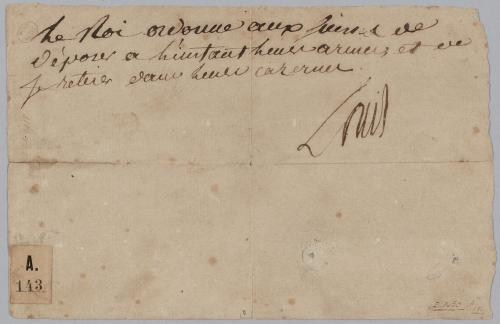 Le Roi ordonne aux Suisses de
déposer a l'instant leurs armes, et de
se retirer dans leurs casernes.
Louis
A.
143